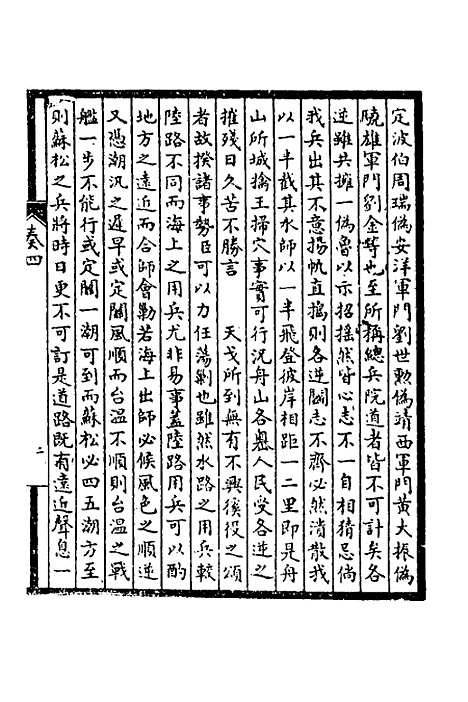 定波伯周瑞偽安洋軍門劉世勲偽靖西軍門黃大振偽
驍雄軍門劉金等也至所稱總兵院道者皆不可計矣各
逆雖共擁一偽魯以示招搖然皆心志不一自相猜忌倘
我兵出其不意揚帆直搗則各逆鬬志不齊必然潰散我
以一半截其水師以一半飛登彼岸相距一二里即是舟
山所城擒王掃穴事實可行況舟山各嶴人民受各逆之
摧殘日久苦不勝言　　天戈所到無有不興後役之頌
者故揆諸事勢臣可以力任蕩剿也雖然水路之用兵較
陸路不同而海上之用兵尤非易事蓋陸路用兵可以酌
地方之遠近而合師會勦若海上出師必候風色之順逆
又憑潮汛之遲早或定關風順而台溫不順則台溫之戰
艦一步不能行或定關一潮可到而蘇松必四五潮方至
則蘇松之兵將時日更不可訂是道路既有遠近聲息一
奏四
二